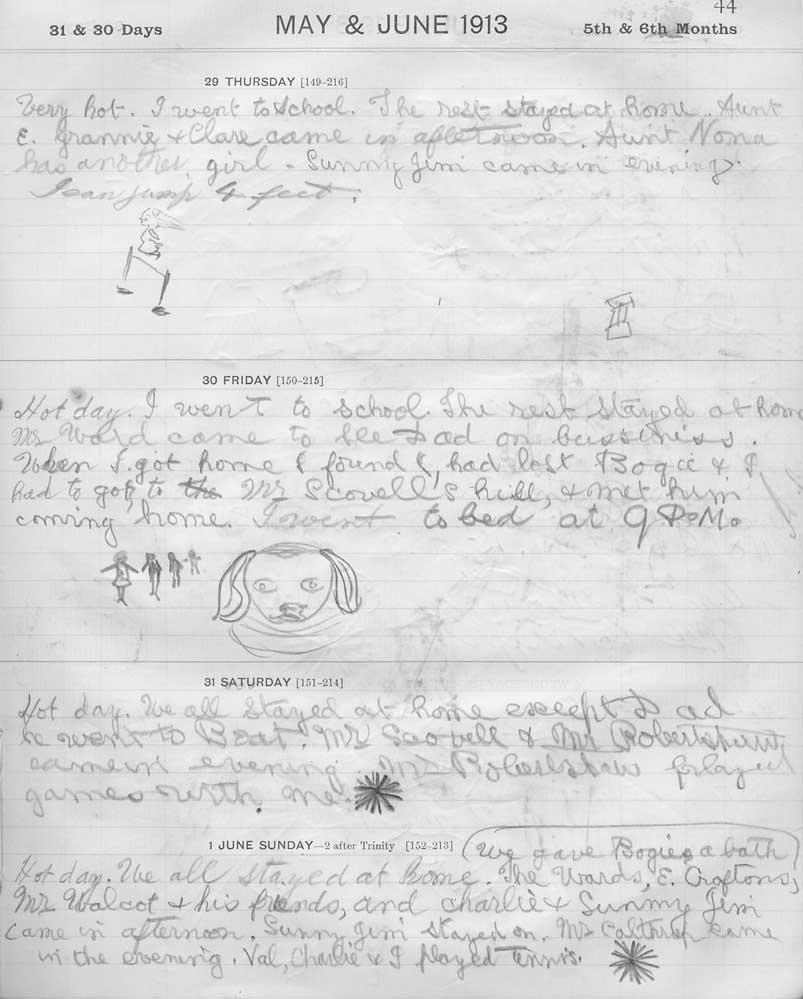 44
31 & 30 Days
MAY & JUNE 1913
5th & 6th Months
29 THURSDAY [149-216]
Very hot. I went to school. The rest stayed at home. Aunt
E. Grannie & Clare came in afternoon. Aunt Nona
has another girl - Sunny Jim came in evening.
I can jump 4 feet.
30 FRIDAY [150-215]
Hot day. I went to school. The rest stayed at home
Mr Ward came to see Dad on bussiness.
When I got home I found I had lost Bogie & I
had to go to the Mr Scovell's hill, & met him
coming home. I went to bed at 9 P.M.
31 SATURDAY [151-214]
Hot day. We all stayed at home except Dad
he went to Boat. Mr Scovell & Mr
came in evening Mr played
games with me.
1 JUNE SUNDAY—2 after Trinity [152-213]
(We gave Bogie a bath)
Hot day. We all stayed at home. The Wards, E. Croftons,
Mr Walcot & his friends, and Charlie & Sunny Jim
came in afternoon. Sunny Jim stayed on. Mr Calthrop came
in the evening. Val, Charlie & I played tennis.